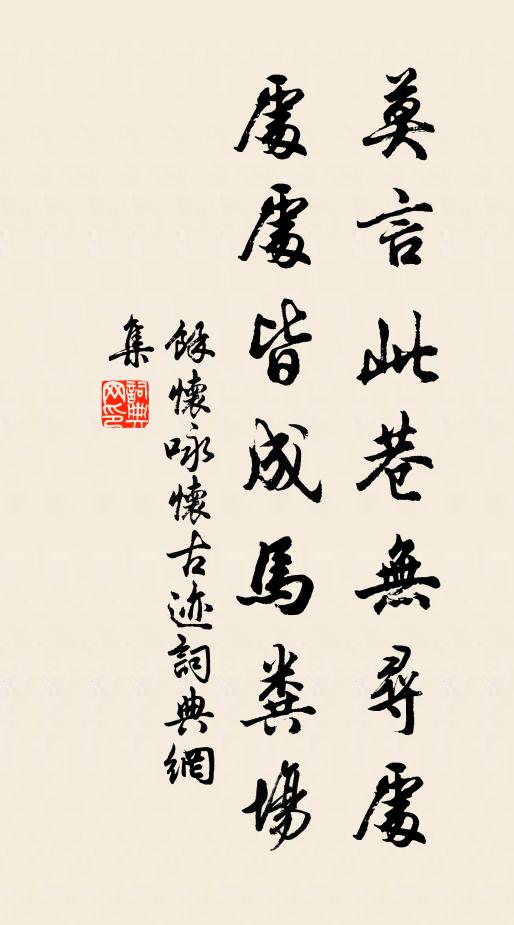 莫言此巷無尋處
處處皆成馬糞場
餘懷咏懷古迹詞典網
集
詞典网印